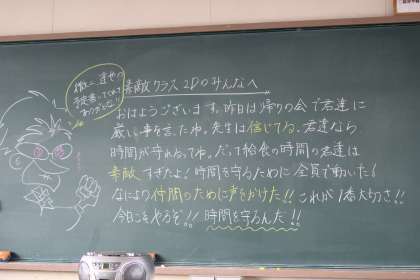 素敵クラス2Dのみんなへ
おはようございます。昨日は帰りの会で君達に
厳しい事を言ったね。先生は信じてる。君達なら
時間が守れるってね。だって給食の時間の君達は
素敵すぎたよ！時間を守るために全員で動いた！
なにより仲間のために声をかけた!!これが1番大切さ!!
今日こそやるぞ!!時間を守るんだ!!